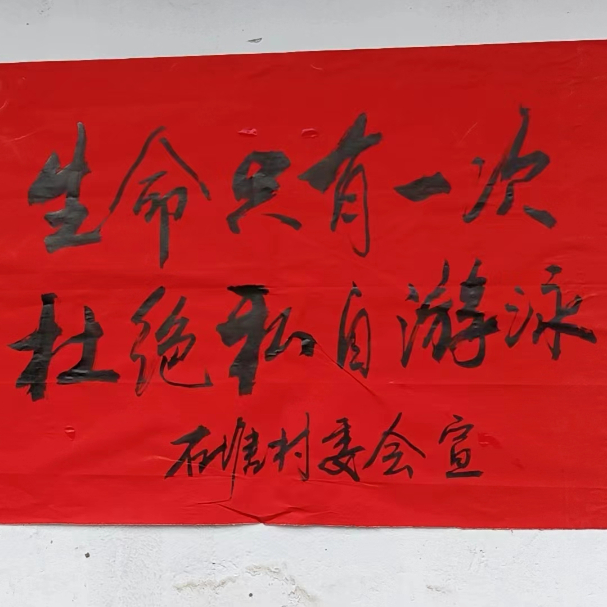 生命只有一次
杜绝私自游泳
石塘村委会 宣